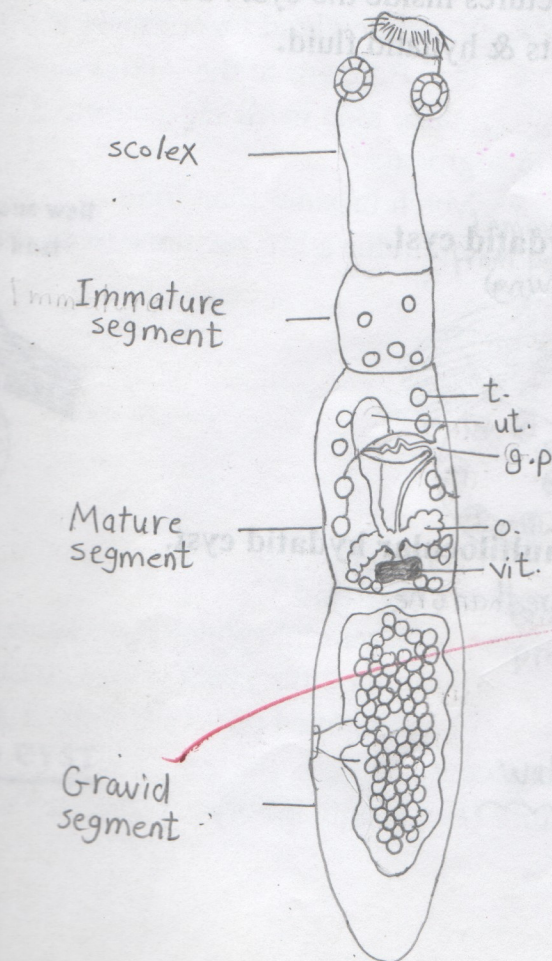 ts & hy fluid.
scolex
Immature
segment
t.
ut.
g.p
Mature
segment
o.
vit.
Gravid
segment